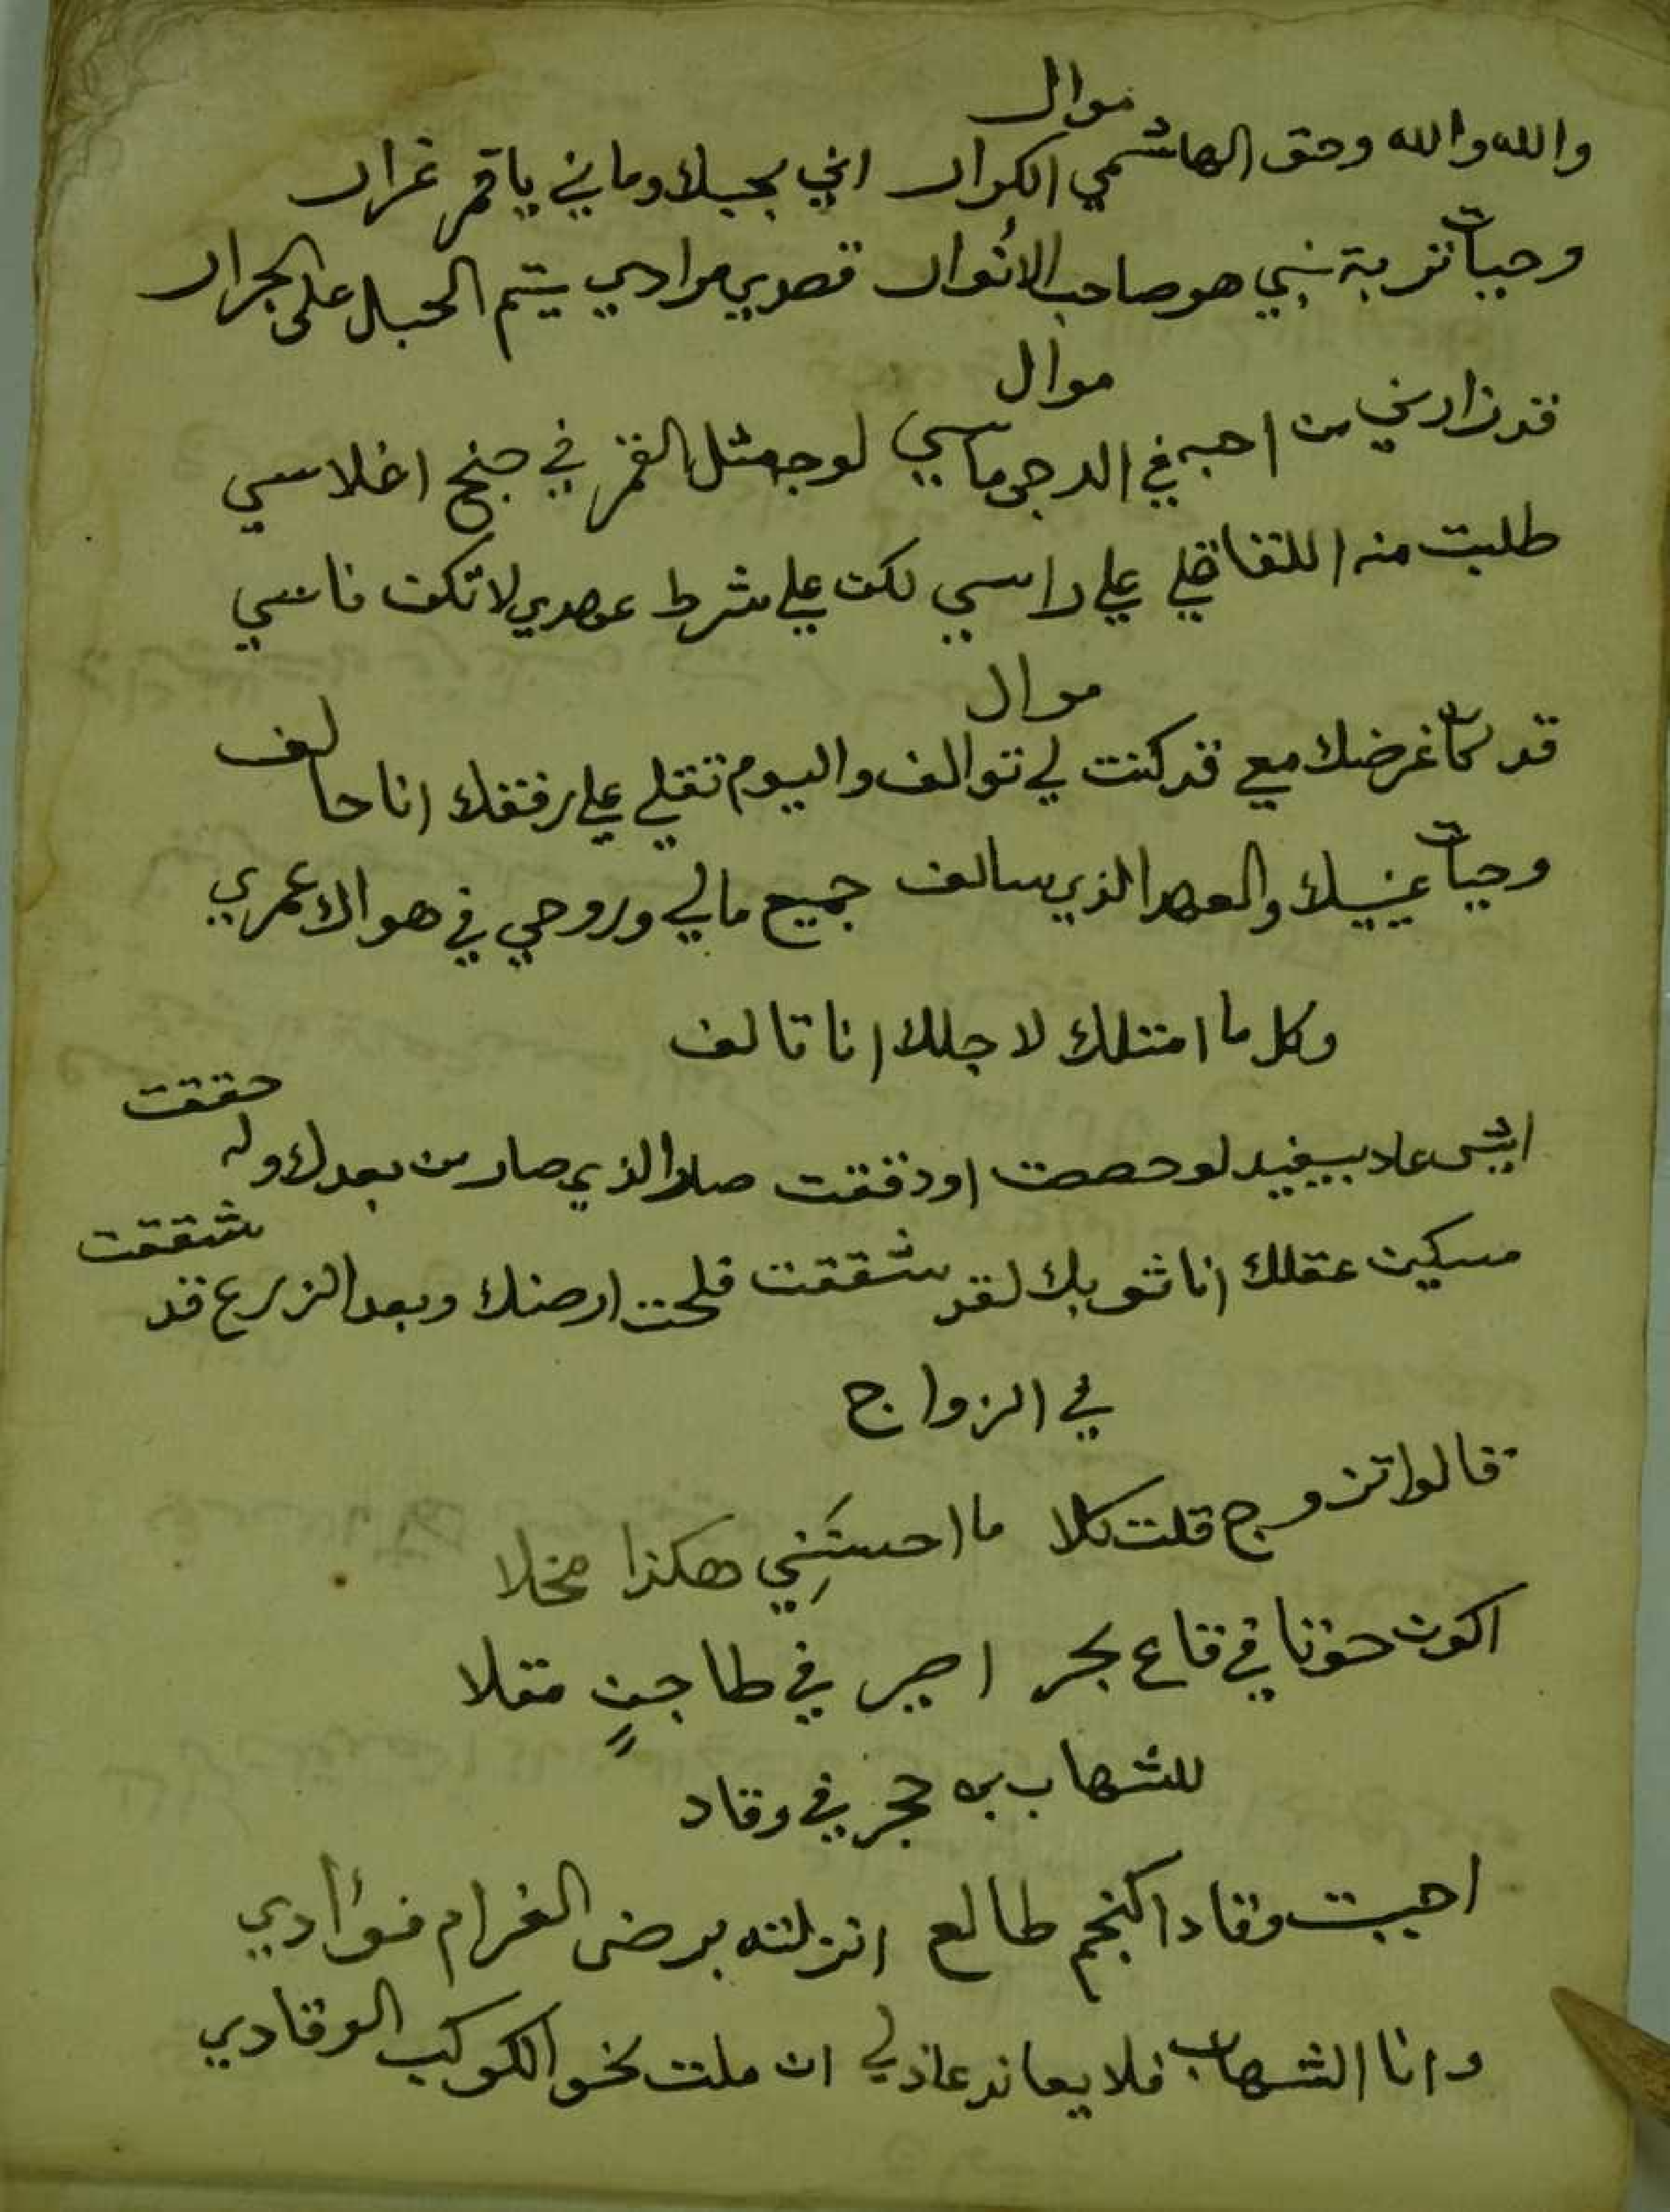 موال
والله والله وحق الهاشمي الكرار اني بحبك وماني ياقمر غرار
وحيات تربة نبي هو صاحب الانوار قصدي مرادي يتم الحبل على الجرار
موال
قد زارني من احبه في الدجى ماسي لو جه مثل القمر في جنح اغلاسي
طلبت منه اللقا قلي على راسي لكن على شرط عهدي لا تكن ناسي
موال
قد كان غرضك معي قد كنت لي توالف واليوم تقلي على رفقك انا حالف
وحيات عينيك والعهد الذي سالف جميع مالي وروحي في هواك عمري
وكل ما امتلك لاجلك انا تالف
ايش عاد بيفيد لو حصصت او دققت صار الذي صار من بعدك وله حققت
مسكين عقلك انا ثوبك لقد شققت فلحت ارضك وبعد الزرع قد شققت
في الزواج
قالوا تزوج قلت كلا ما احسنني هكذا مخلا
اكون حوتا في قاع بحر اصير في طاجن مقلا
للشهاب بن حجر في وقاد
احببت وقادا كنجم طالع انزلته برضى الغرام فؤادي
وانا الشهاب فلا يعاند عاذلي ان ملت نحو الكوكب الوقادي